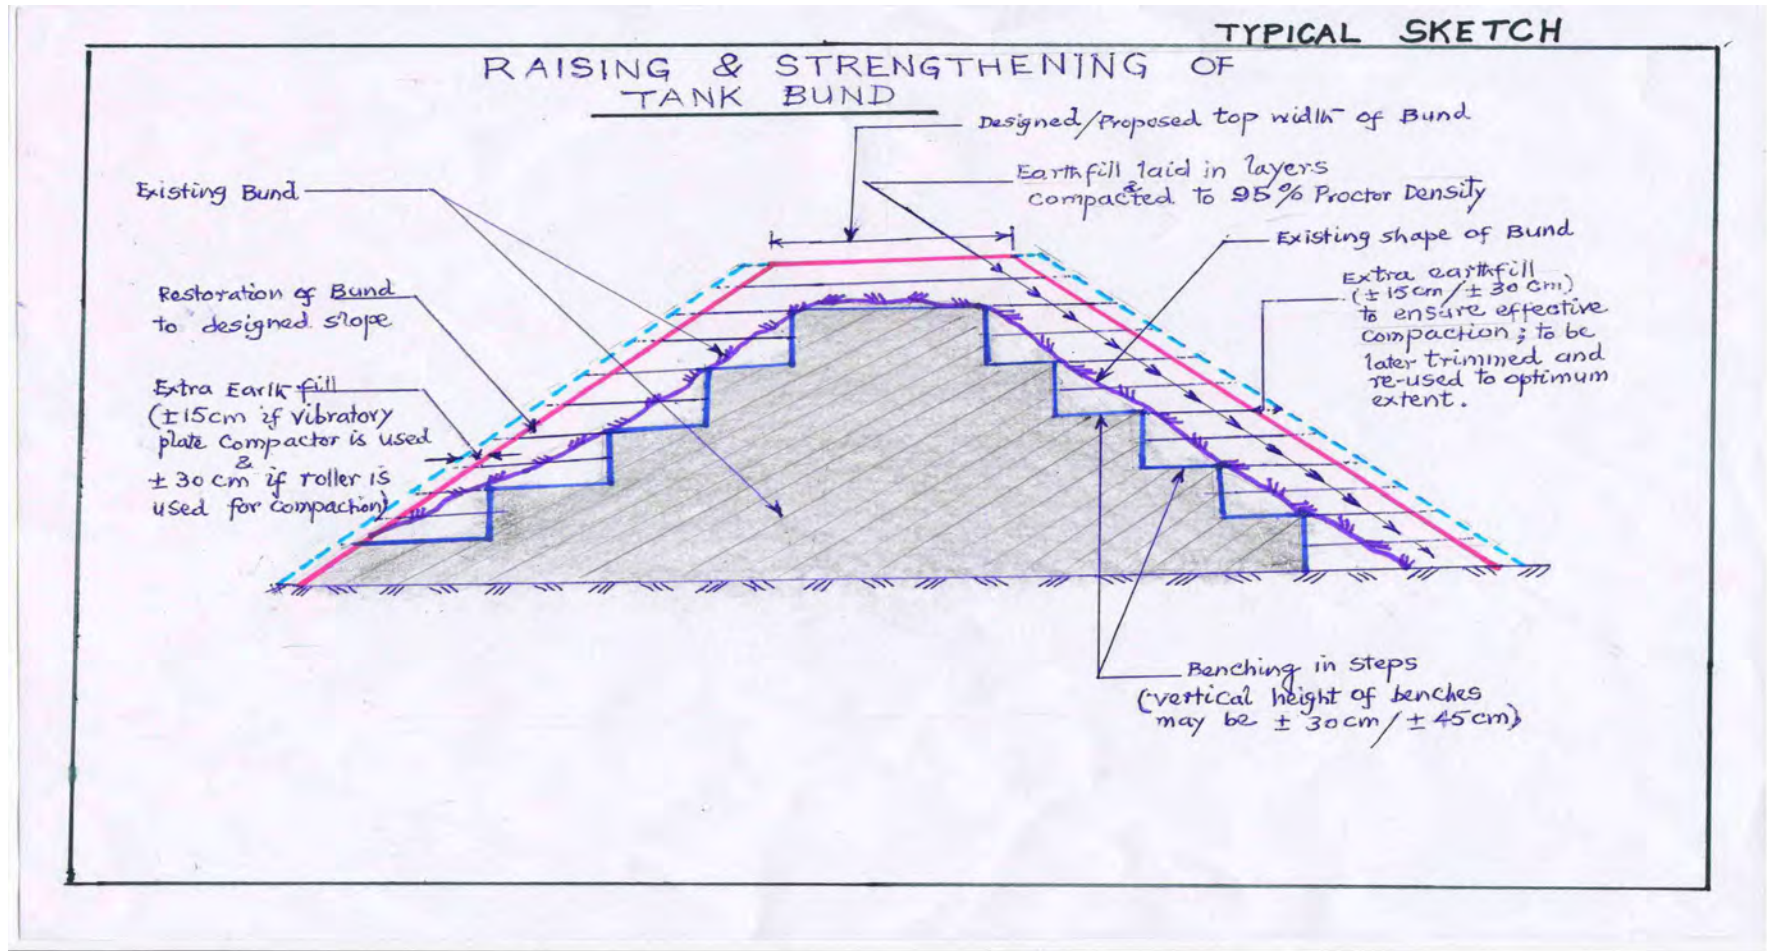 TYPICAL SKETCH
RAISING & STRENGTHENING OF
TANK BUND
Designed/Proposed top width of Bund
Earthfill laid in layers
& compacted to 95% Proctor Density
Existing Bund
Existing shape of Bund
Restoration of Bund
to designed slope
Extra earthfill
(±15cm/±30cm)
to ensure effective
compaction; to be
later trimmed and
re-used to optimum
extent.
Extra Earth fill
(±15cm if vibratory
plate compactor is used
&
±30cm if roller is
used for compaction)
Benching in steps
(vertical height of benches
may be ±30cm/±45cm)